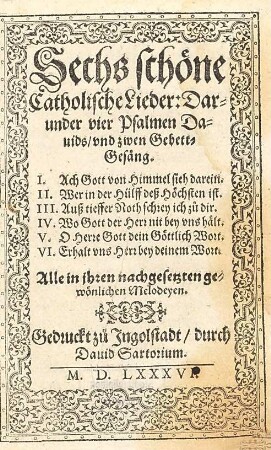 Sechs schöne
Catholische Lieder: Dar-
under vier Psalmen Da-
uids / vnd zwen Gebett-
Gesäng.
I. Ach Gott von Himmel sieh darein.
II. Wer in der Hülff deß Höchsten ist.
III. Auß tieffer Noth schrey ich zů dir.
IV. Wo Gott der Herr nit bey vns hält.
V. O Herre Gott dein Göttlich Wort.
VI. Erhalt vns Herr bey deinem Wort.
Alle in jhren nachgesetzten ge-
wönlichen Melodeyen.
Gedruckt zů Ingolstadt / durch
Dauid Sartorium.
M. D. LXXXVI.